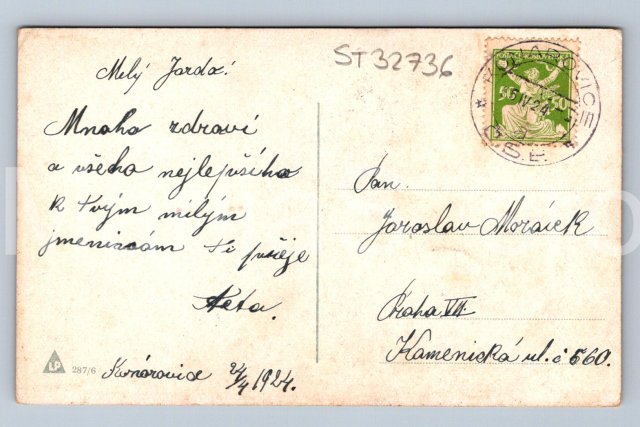 ST32736
Milý Jardo!
Mnoho zdraví
a všeho nejlepšího
k tvým milým
jmeninám ti přeje
teta.
24/4 1924.
LP
287/6
50 50
24
Pan.
Jaroslav
Praha VII
Kamenická ul. č 560.